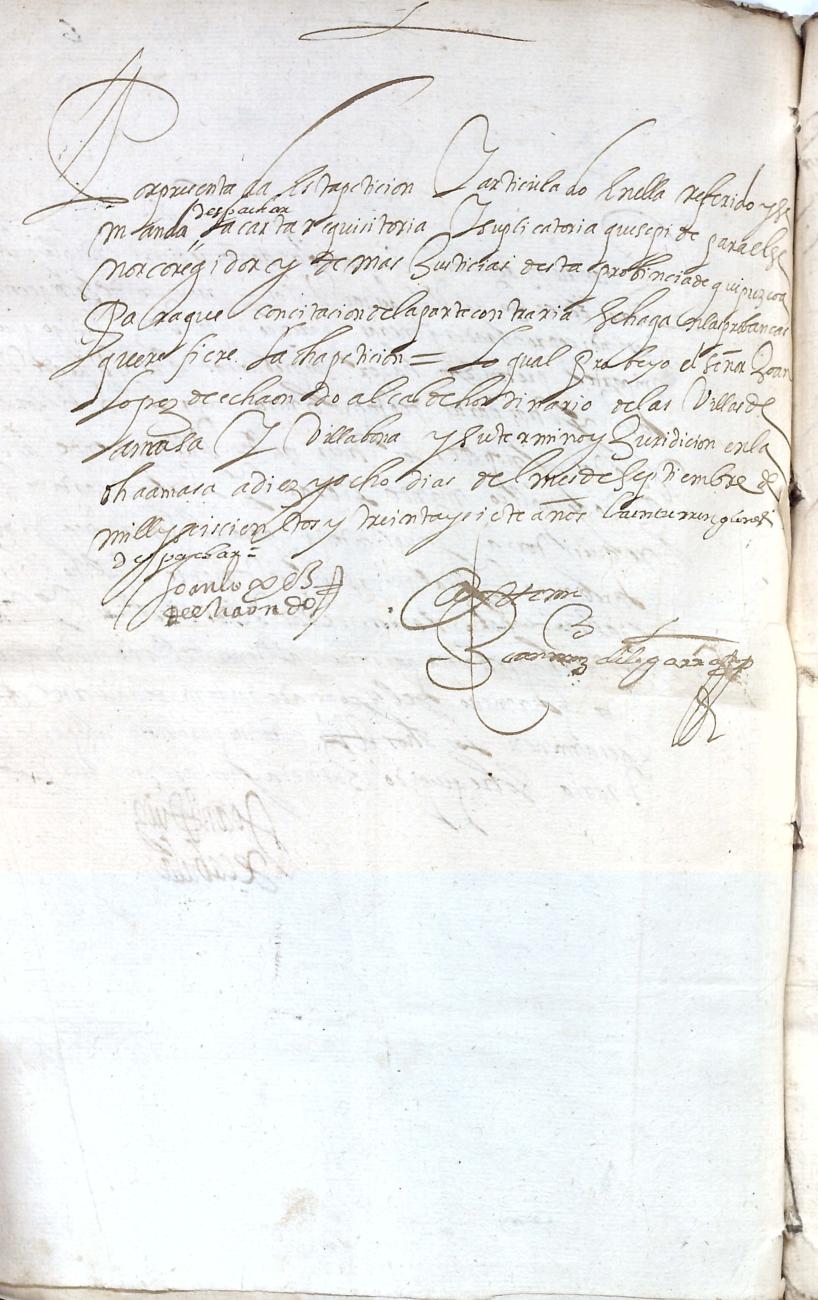 Por presentada Esta peticion Y articulado En ella referido y Se
despachar
manda la carta requisitoria Y suplicatoria que se pide para el Se
ñor coregidor y de mas Justicias desta probincia de guipuzcoa
Para que con citacion de la parte contraria Se haga En las probancas
que refiere La dha peticion = Lo qual Probeyo el señor Joan
Lopez de echaondo alcalde hordinario de las Villas de
amasa Y Villabona y Su termino y Juridicion en la
dha amasa a diez y ocho dias del mes de Septiembre de
mill y seiscientos y treinta y siete años
despachar =
Joan lopez
de echaondo
Ante mi